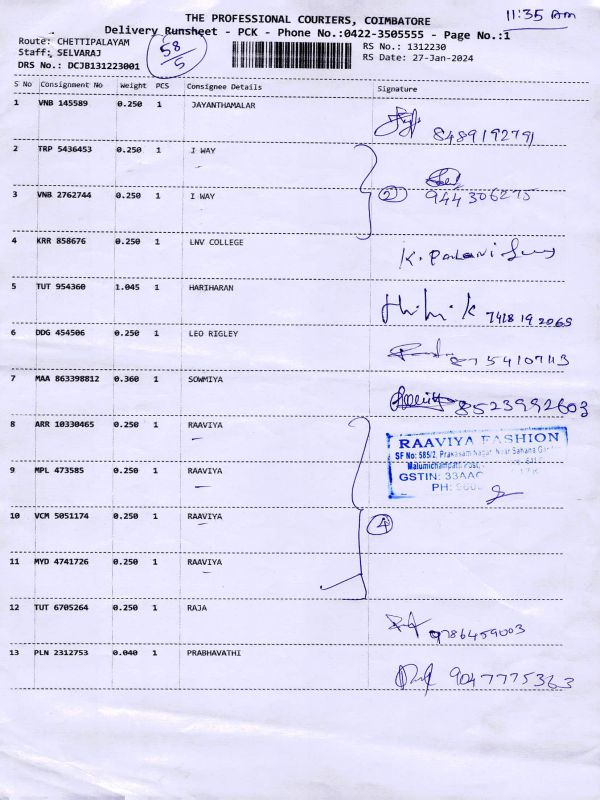 THE PROFESSIONAL COURIERS, COIMBATORE
11:35 Am
Delivery Runsheet - PCK - Phone No.:0422-3505555 - Page No.:1
Route: CHETTIPALAYAM
58/5
RS No.: 1312230
Staff: SELVARAJ
RS Date: 27-Jan-2024
DRS No.: DCJB131223001
S No Consignment No Weight PCS Consignee Details Signature
1 VNB 145589 0.250 1 JAYANTHAMALAR
8489192791
2 TRP 5436453 0.250 1 I WAY
3 VNB 2762744 0.250 1 I WAY
2 944306275
4 KRR 858676 0.250 1 LNV COLLEGE
K. Palani
5 TUT 954360 1.045 1 HARIHARAN
7418 19 2065
6 DDG 454506 0.250 1 LEO RIGLEY
8754107113
7 MAA 863398812 0.360 1 SOWMIYA
8523992603
8 ARR 10330465 0.250 1 RAAVIYA
RAAVIYA FASHION
SF No: 585/2, Prakasam Nagar, Near Sahana
Malumichampatti Post,
9 MPL 473585 0.250 1 RAAVIYA
GSTIN: 33AAC
PH:
10 VCM 5051174 0.250 1 RAAVIYA
4
11 MYD 4741726 0.250 1 RAAVIYA
12 TUT 6705264 0.250 1 RAJA
9786459003
13 PLN 2312753 0.040 1 PRABHAVATHI
9047775363